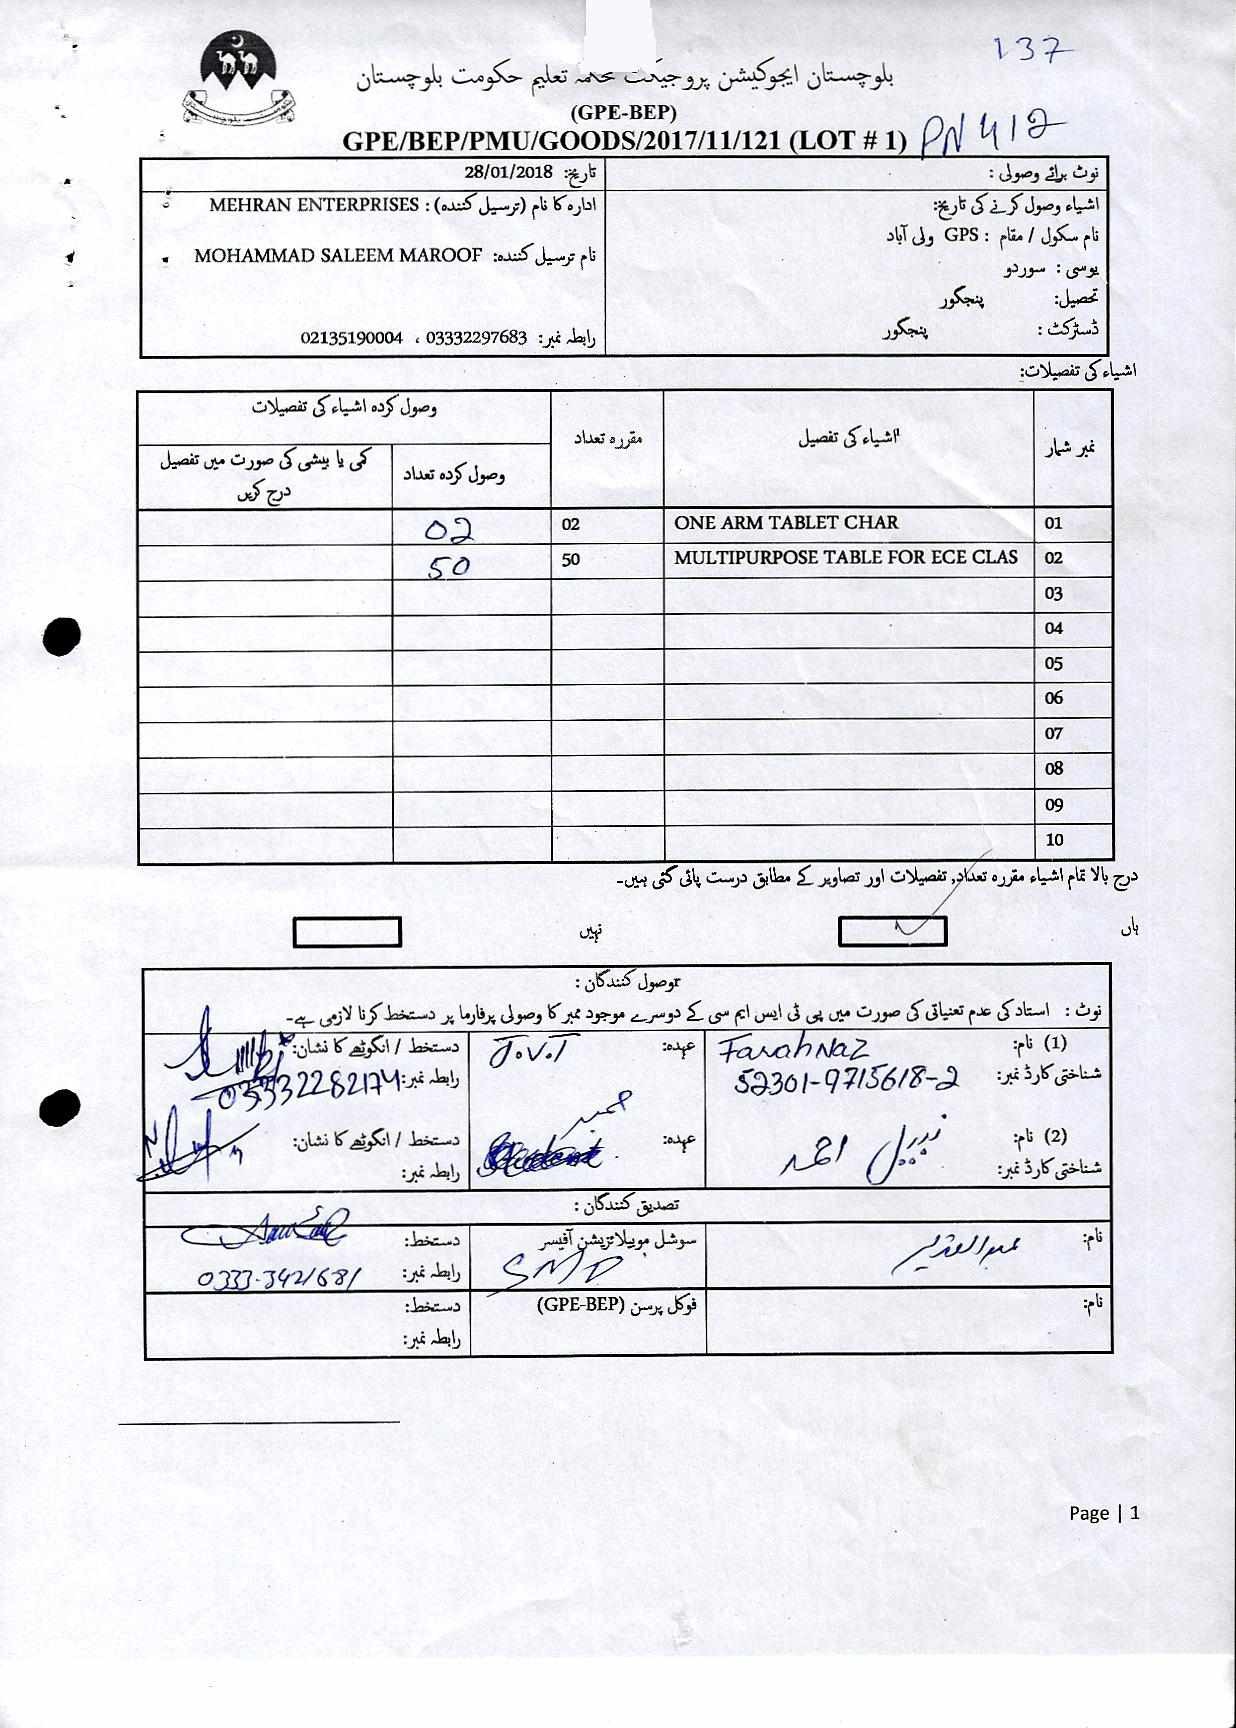 137
بلوچستان ایجوکیشن پروجیکٹ محکمہ تعلیم حکومت بلوچستان
(GPE-BEP)
GPE/BEP/PMU/GOODS/2017/11/121 (LOT # 1) PN 412
نوٹ برائے وصولی :
تاریخ: 28/01/2018
اشیاء وصول کرنے کی تاریخ:
نام سکول / مقام : GPS ولی آباد
یوسی : سوردو
تحصیل: پنجگور
ڈسٹرکٹ : پنجگور
ادارہ کا نام (ترسیل کنندہ) : MEHRAN ENTERPRISES
نام ترسیل کنندہ: MOHAMMAD SALEEM MAROOF
رابطہ نمبر: 03332297683 ، 02135190004
اشیاء کی تفصیلات:
نمبر شمار
اشیاء کی تفصیل
مقررہ تعداد
وصول کردہ اشیاء کی تفصیلات
وصول کردہ تعداد
کمی یا بیشی کی صورت میں تفصیل
درج کریں
01 ONE ARM TABLET CHAR 02 02
02 MULTIPURPOSE TABLE FOR ECE CLAS 50 50
03
04
05
06
07
08
09
10
درج بالا تمام اشیاء مقررہ تعداد, تفصیلات اور تصاویر کے مطابق درست پائی گئی ہیں۔
ہاں
نہیں
وصول کنندگان :
نوٹ : استاد کی عدم تعنیاتی کی صورت میں پی ٹی ایس ایم سی کے دوسرے موجود ممبر کا وصولی پرفارما پر دستخط کرنا لازمی ہے۔
(1) نام: Farah Naz
عہدہ: J.V.T
دستخط / انگوٹھے کا نشان:
شناختی کارڈ نمبر: 52301-9715618-2
رابطہ نمبر: 03332282174
(2) نام: نبیل احمد
عہدہ: ممبر
دستخط / انگوٹھے کا نشان:
شناختی کارڈ نمبر:
رابطہ نمبر:
تصدیق کنندگان :
نام: عبدالقدیر
سوشل موبیلائزیشن آفیسر
SMO
دستخط:
رابطہ نمبر: 0333-3421681
نام:
فوکل پرسن (GPE-BEP)
دستخط:
رابطہ نمبر:
Page | 1